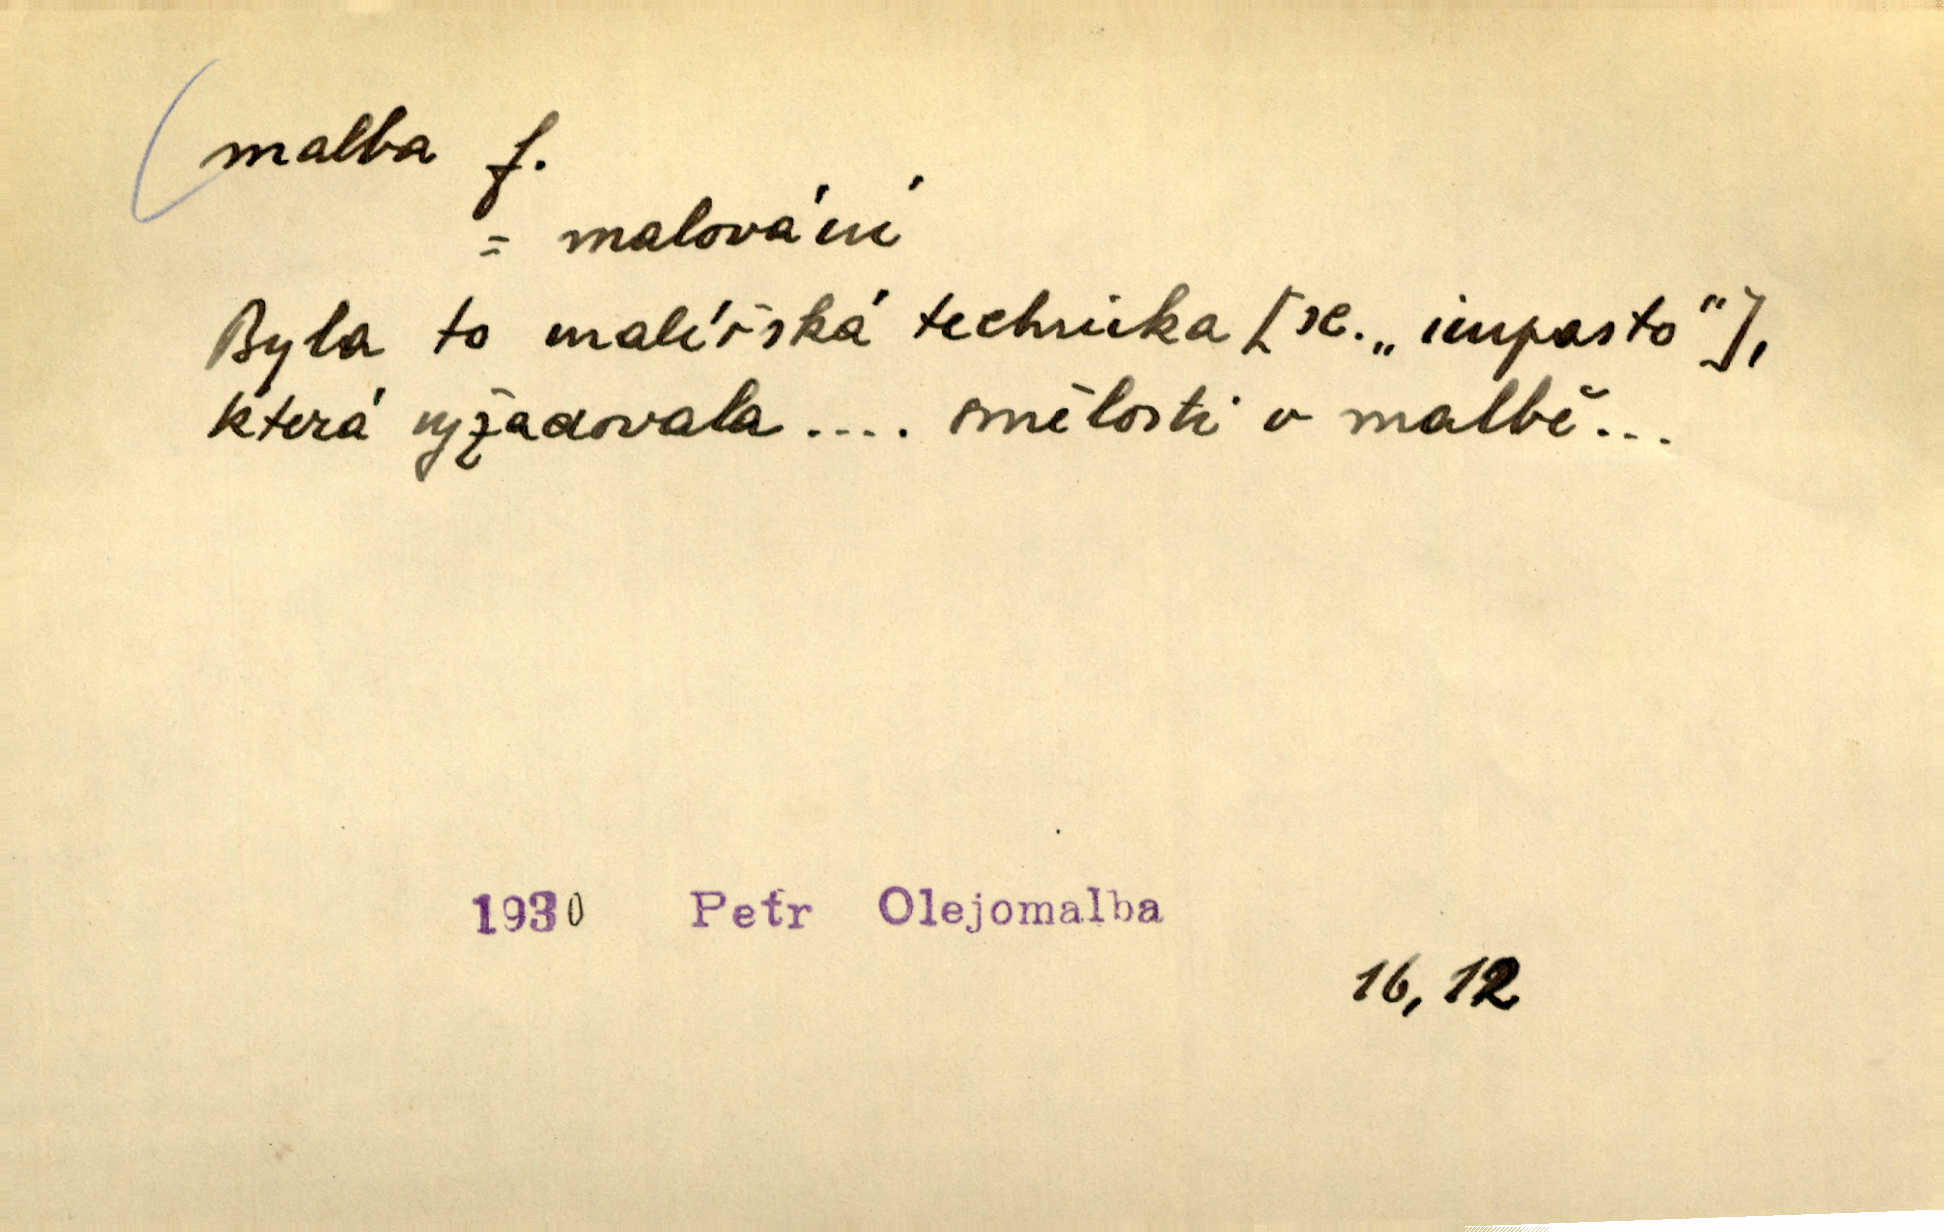 malba f.
= malování
Byla to malířská technika [sc. „impasto"],
která vyžadovala .... smělosti v malbě...
1930 Petr Olejomalba
16, 12